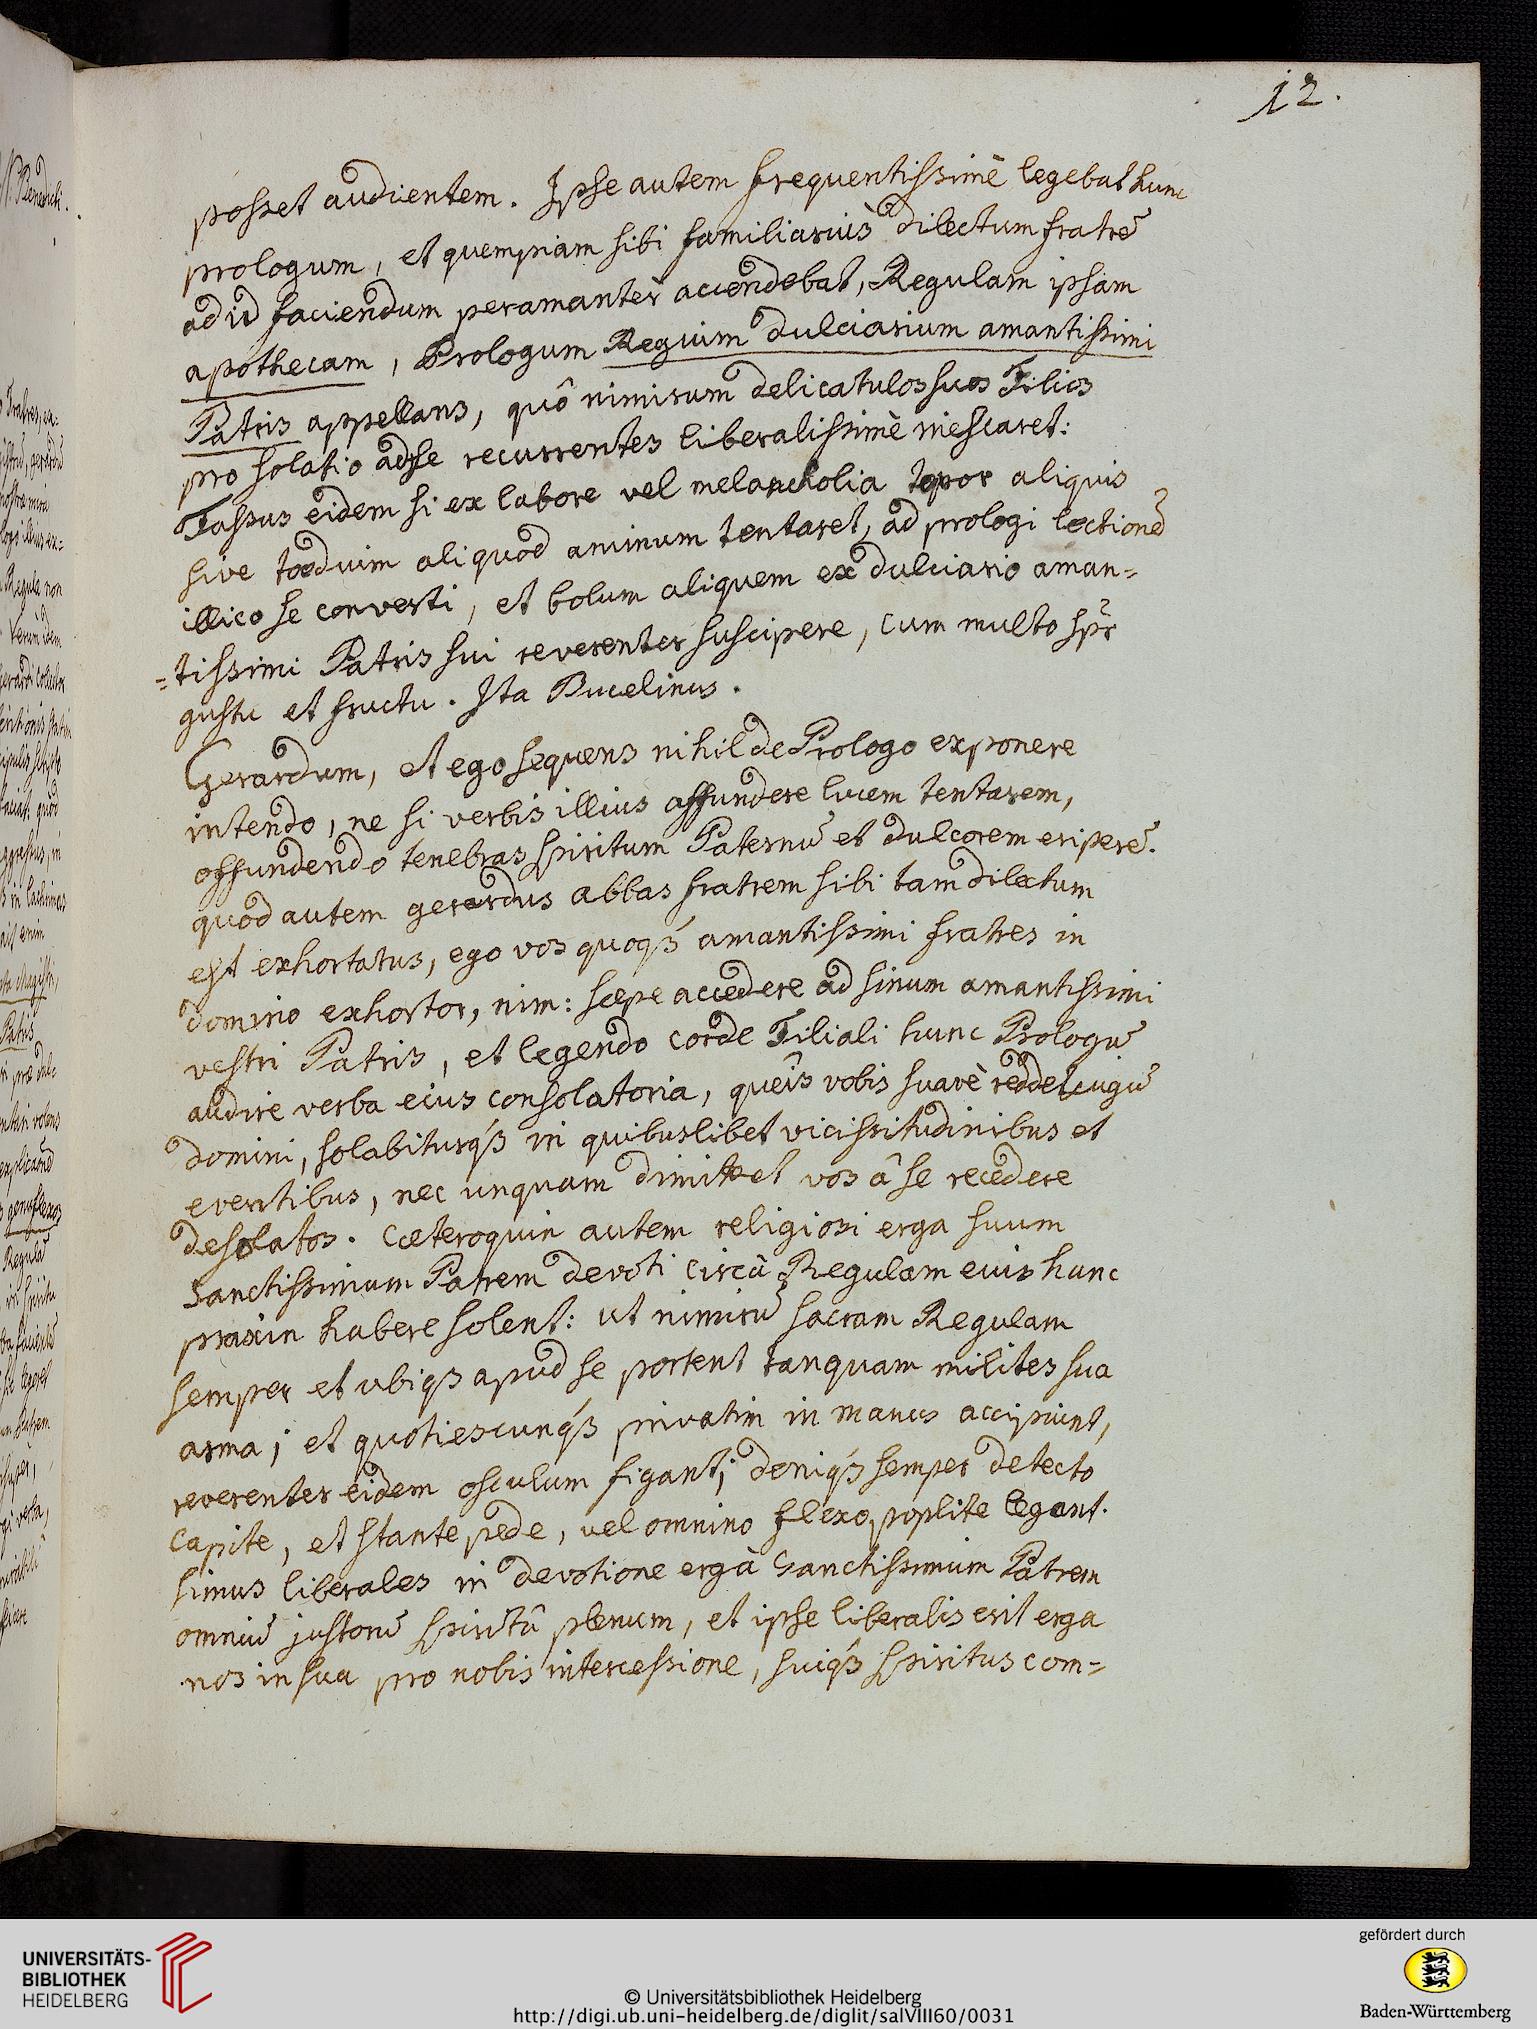 12.
posset audientem. Ipse autem frequentissimè legebat hunc
prologum, et quempiam sibi familiariùs dilectum fratrē
ad id faciendum peramantèr accendebat, Regulam ipsam
apothecam, Prologum Regium dulciarium amantissimi
Patris appellans, quô nimirum delicatulos suos Filios
pro solatio ad se recurrentes liberalissimè inescaret:
Fassus eidem si ex labore vel melancholia topor aliquis
sive toedium aliquod animum tentaret, ad prologi lectionē
illico se converti, et bolum aliquem ex dulciario aman-
=tissimi Patris sui reverenter suscipere, cum multo spr
gustu et fructu. Ita Bucelinus.
Gerardum, et ego sequens nihil de Prologo exponere
intendo, ne si verbis illius affundere lucem tentarem,
offundendo tenebras spiritum Paternū et dulcorem eriperē.
quod autem gerardus abbas fratrem sibi tam dilectum
est exhortatus, ego vos quoqꝫ amantissimi fratres in
domino exhortor, nim: saepe accedere ad sinum amantissimi
vestri Patris, et legendo corde Filiali hunc Prologū
audire verba eius consolatoria, queîs vobis suavè reddet iugū
domini, solabiturqꝫ in quibuslibet vicissitudinibus et
eventibus, nec unquam dimittet vos â se recedere
desolatos. Caeteroquin autem religiosi erga suum
Sanctissimum Patrem devoti circà Regulam eius hanc
praxin habere solent: ut nimirū sacram Regulam
semper et ubiqꝫ apud se portent tanquam milites sua
arma; et quotiescunqꝫ privatim in manus accipiunt,
reverenter eidem osculum figant; deniqꝫ semper detecto
Capite, et stante pede, vel omnino flexo poplite legant.
simus liberales in devotione ergà Sanctissimum Patrem
omniū justorū spiritû plenum, et ipse liberalis erit erga
nos in sua pro nobis intercessione, suiqꝫ spiritus com=
UNIVERSITÄTS-
BIBLIOTHEK
HEIDELBERG
© Universitätsbibliothek Heidelberg
http://digi.ub.uni-heidelberg.de/diglit/salVIII60/0031
gefördert durch
Baden-Württemberg